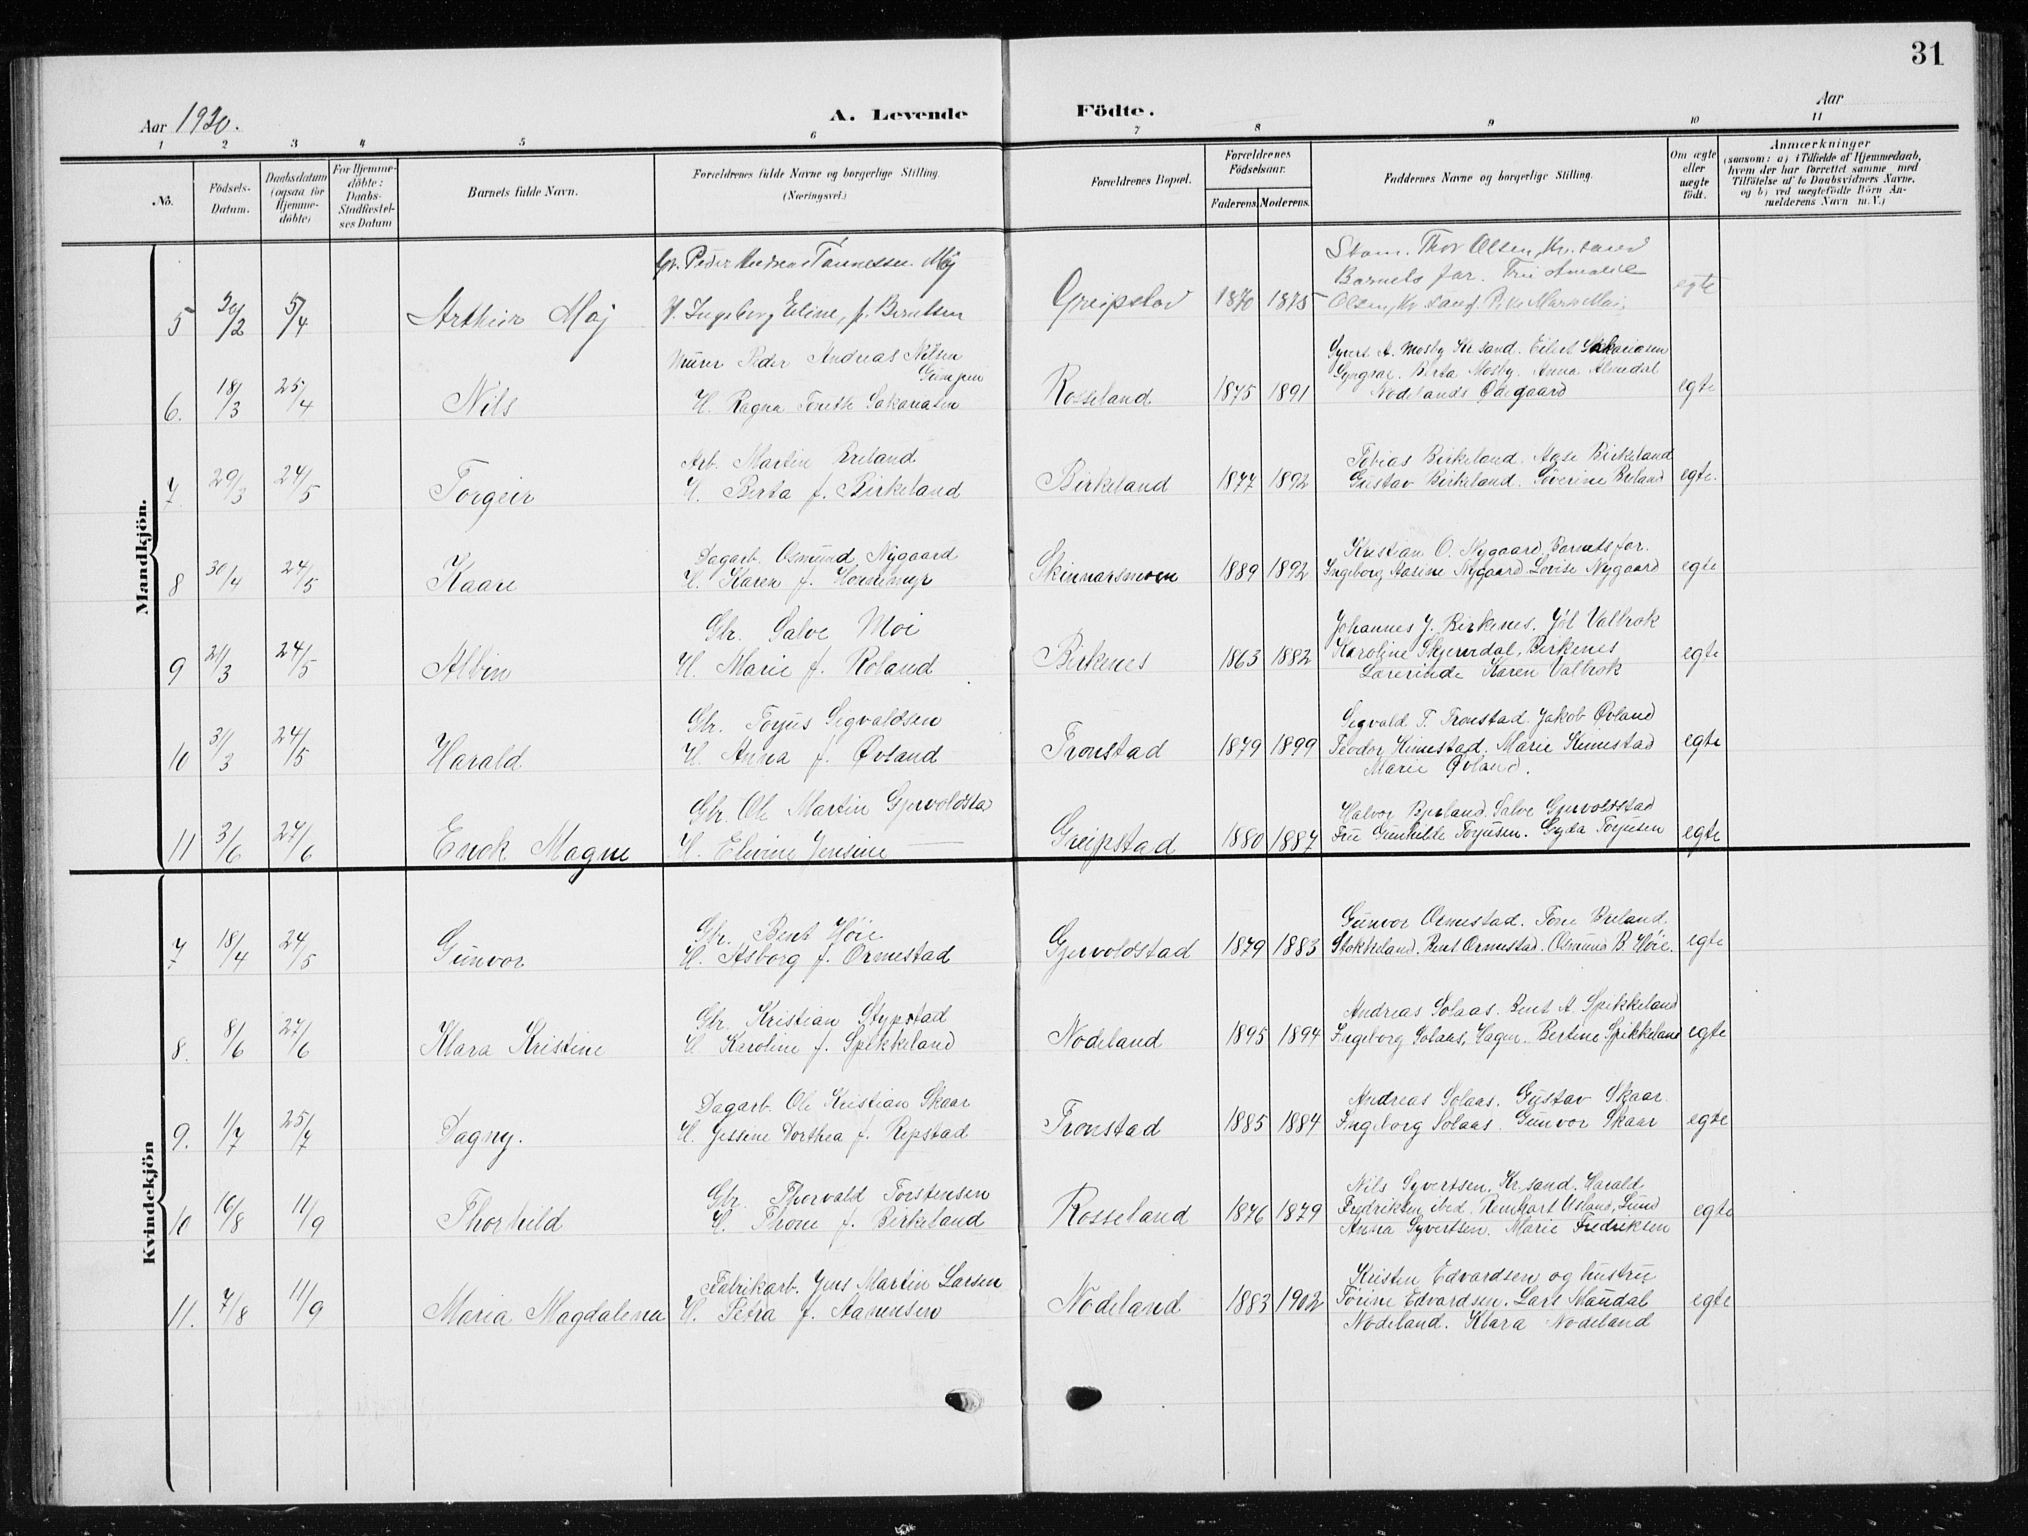 31
Aar 1920.
A. Levende Födte.
Aar
1 2 3 4 5 6 7 8 9 10 11
No.
Födsels-Datum.
Daabsdatum (ogsaa for Hjemme-döbte)
For Hjemme-döbte: Daabs-Stadfæstel-ses Datum
Barnets fulde Navn.
Forældrenes fulde Navne og borgerlige Stilling.
(Næringsvei.)
Forældrenes Bopæl.
Forældrenes Födselsaar.
Faderens. Moderens.
Faddernes Navne og borgerlige Stilling.
Om ægte eller uægte födt.
Anmærkninger
(saasom: a) i Tilfælde af Hjemmedaab,
hvem der har forrettet samme, med
Tilföielse af to Daabsvidners Navne.
og b) ved uægtefödte Börn An-
melderens Navn m. V.)
Mandkjön.
Gr. Peder Andreas Tønnessen Moj
5 20/2 5/4 Arthur Moj
H. Ingeborg Eline, f. Berntsen
Greipstad 1870 1875
Stom. Thor Olsen, Kr.sand
Barnets far. Fru Amalie
Olsen, Kr.sand
egte
Murer Peder Andreas Nilsen
Gumpen
6. 18/3 25/4 Nils
H. Ragna Torette Sakariasen
Rosseland 1875 1891
Syvert A. Mosby Kr.sand. Eilert Sakariasen
Berta Mosby. Anna Almedal
Nodelands Ødegaard
egte
Arb. Martin Breland
7. 29/3 24/5 Torgeir
H. Berta f. Birkeland
Birkeland 1877 1892
Tobias Birkeland. Aase Birkeland
Gustav Birkeland. Søverine Breland
egte.
Dagarb. Osmund Nygaard
8 30/4 24/5 Kaare
H. Karen f.
Skinnarsmoen 1889 1892
Kristian O. Nygaard, Barnets far.
Ingeborg Aasine Nygaard Lovise Nygaard
egte
Gbr. Salve Moi
9 21/3 24/5 Albin
H. Marie f. Roland
Birkenes 1863 1882
Johannes J. Birkenes. Joel Valbrok
Karoline Skjeverdal, Birkenes
Lærerinde Karen Valbrok
egte
Gbr. Torjus Segvaldsen
10 31/3 24/5 Harald
H. Anna f. Øvland
Tronstad 1879 1899
Segvald T. Tronstad. Jakob Øvland
Teodor Kimestad. Marie Kimestad
Marie Øvland.
egte
Gbr. Ole Martin Gjervoldsta
11 3/6 27/6 Enok Magne
H. Elevine Jensine
Greipstad 1880 1887
Halvor Bjerland. Salve Gjervoldstad
Fru Gunhilde Torjusen. Gyda Torjusen
egte
Kvindekjön
Gbr. Bent Høie
7. 18/4 24/5 Gunvor
H. Asborg f. Ormestad
Gjervoldstad 1879 1883
Gunvor Ormestad. Tone Breland.
Stokkeland. Bent Ormestad. Osmund B. Høie.
egte
Gbr. Kristian Stypstad
8. 8/6 27/6 Klara Kristine
H. Karoline f. Spikkeland
Nodeland 1895 1894
Andreas Solaas. Bent A. Spikkeland
Ingeborg Solaas, Hagen. Bertine Spikkeland
egte
Dagarb. Ole Kristian Skaar
9. 1/7 25/7 Dagny.
H. Jessine Dorthea f. Repstad
Tronstad 1885 1884
Andreas Solaas. Gustav Skaar.
Ingeborg Solaas. Gunvor Skaar
egte
Gbr. Thorvald Torstensen
10 16/8 11/9 Thorhild
H. Thone f. Birkeland
Rosseland 1876 1879
Nils Syvertsen, Kr.sand. Harald
Fredriksen ibid. Reinhart Usland, Lund
Anna Syvertsen. Marie Fredriksen
egte
Fabrikarb. Jens Martin Larsen
11. 7/8 11/9 Maria Magdalena
H. Petra f. Aanensen
Nodeland 1883 1902
Kristen Edvardsen og hustru
Torine Edvardsen. Lars Maudal
Nodeland. Klara Nodeland
egte